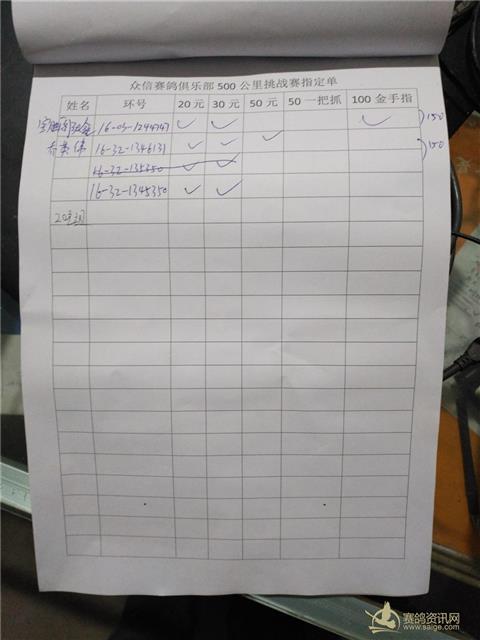 众信赛鸽俱乐部500公里挑战赛指定单
姓名 环号 20元 30元 50元 50一把抓 100金手指
16-03-1244747 ✓ ✓ ✓ 150
16-32-1346131 ✓ ✓ ✓ 150
16-32-135350 ✓ ✓
16-32-1345350 ✓ ✓
赛鸽资讯网
www.saige.com